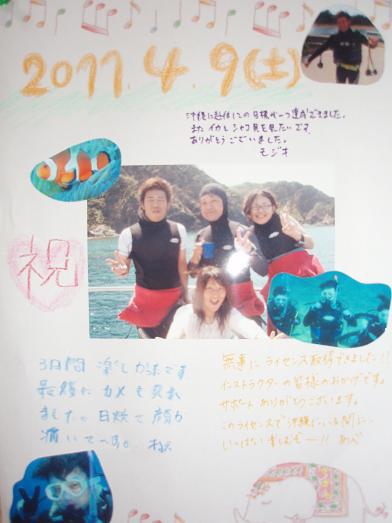 2011.4.9(土)
沖縄に赴任しての目標が一つ達成できました。
またイカとシャコ貝を見たいです
ありがとうございました。
モジオ
祝
3日間 楽しかったです
最後に カメも見れ
ました。日焼で顔が
痛いでーす。
無事にライセンス取得できました!!
インストラクターの皆様のおかげです。
サポートありがとうございます。
このライセンスで沖縄にいる間に
いっぱい
あべ